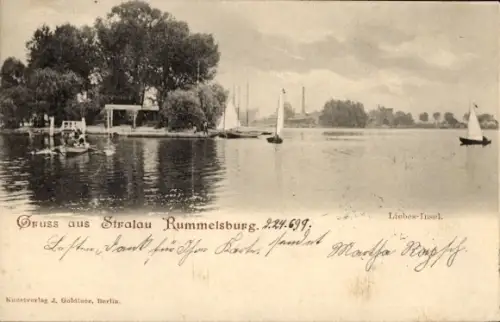 Gruss aus Stralau Rummelsburg.
Liebes-Insel.
Dank für Ihre Karte. sendet Martha
Kunstverlag J. Goldiner, Berlin.